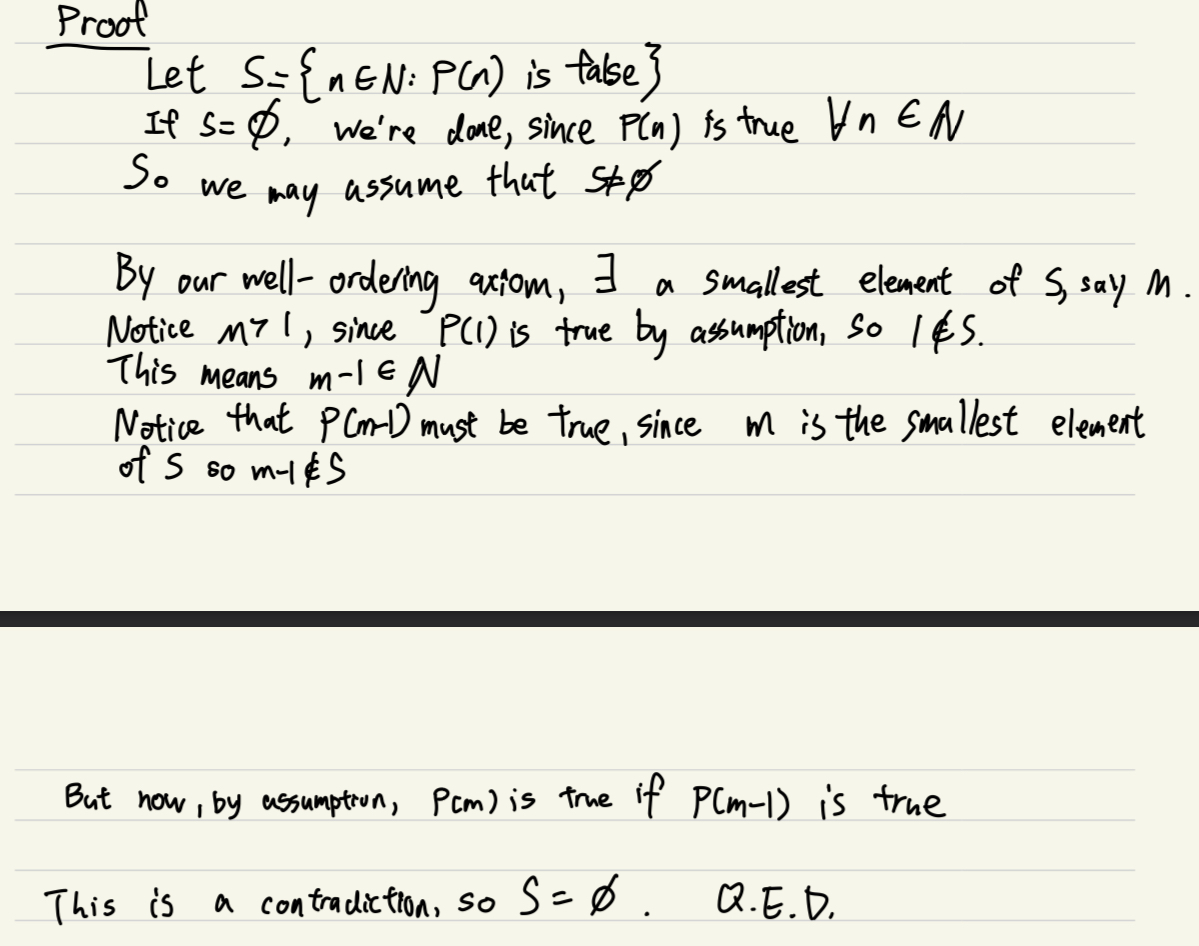 Proof
Let S={n∈N: P(n) is false}
If S=∅, we're done, since P(n) is true ∀n ∈ ℕ
So we may assume that S≠∅
By our well-ordering axiom, ∃ a smallest element of S, say m.
Notice m>1, since P(1) is true by assumption, so 1∉S.
This means m-1 ∈ ℕ
Notice that P(m-1) must be true, since m is the smallest element
of S so m-1∉S
But now, by assumption, P(m) is true if P(m-1) is true
This is a contradiction, so S=∅. Q.E.D.